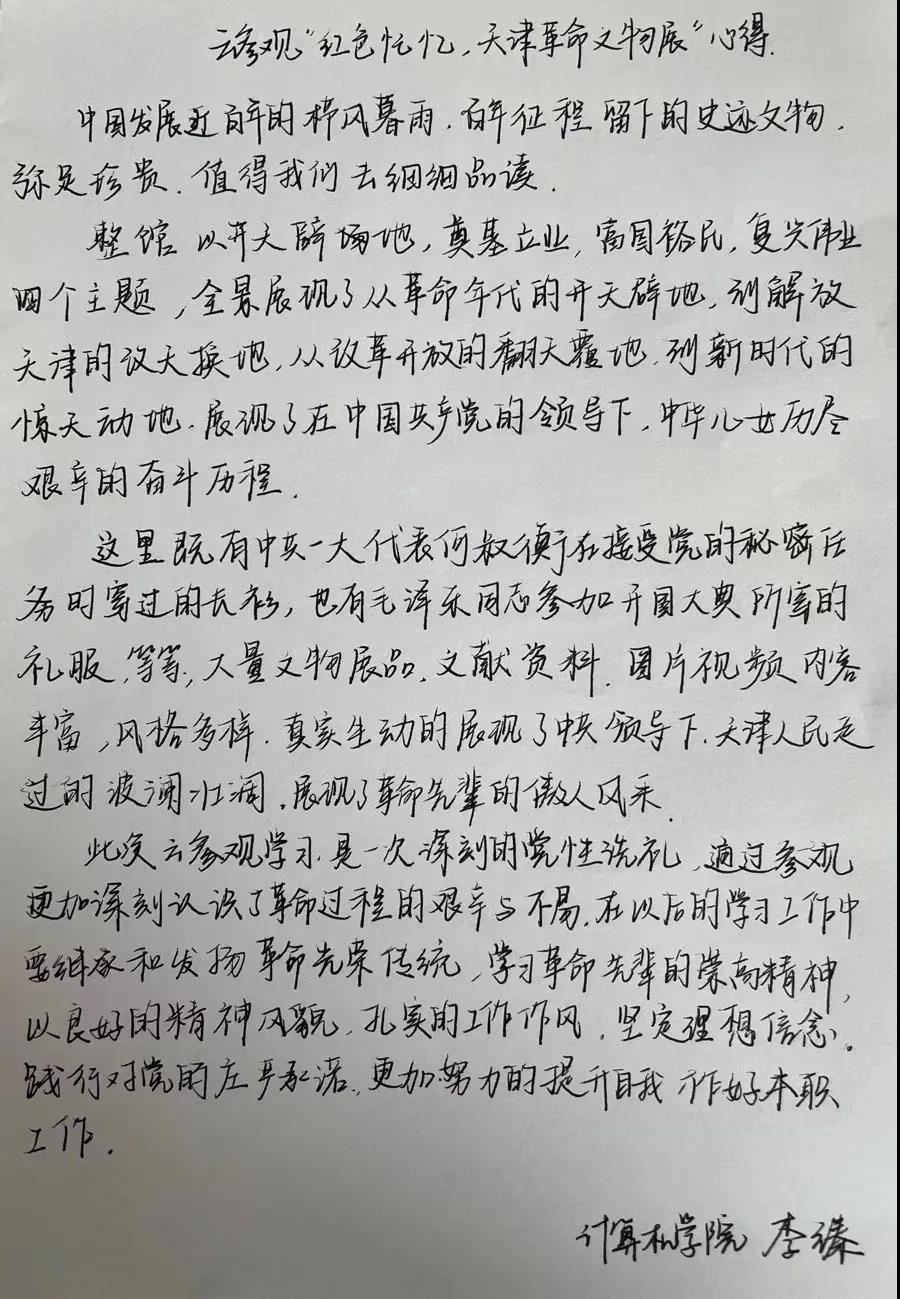 云参观“红色记忆，天津革命文物展”心得.
中国发展近百年的栉风暮雨.百年征程留下的史迹文物.
弥足珍贵.值得我们去细细品读.
整馆以开天辟场地，奠基立业，富国裕民，复兴伟业
四个主题，全景展现了从革命年代的开天辟地，到解放
天津的改天换地，从改革开放的翻天覆地.到新时代的
惊天动地.展现了在中国共产党的领导下.中华儿女历尽
艰辛的奋斗历程.
这里既有中共一大代表何叔衡在接受党的秘密任
务时穿过的长衫，也有毛泽东同志参加开国大典所穿的
礼服.等等，大量文物展品.文献资料.图片视频内容
丰富，风格多样.真实生动的展现了中央领导下.天津人民走
过的波澜壮阔.展现了革命先辈的傲人风采.
此次云参观学习.是一次深刻的党性洗礼，通过参观
更加深刻认识了革命过程的艰辛与不易.在以后的学习工作中
要继承和发扬革命光荣传统，学习革命先辈的崇高精神，
以良好的精神风貌.扎实的工作作风.坚定理想信念.
践行对党的庄严承诺.更加努力的提升自我作好本职
工作.
计算机学院 李臻